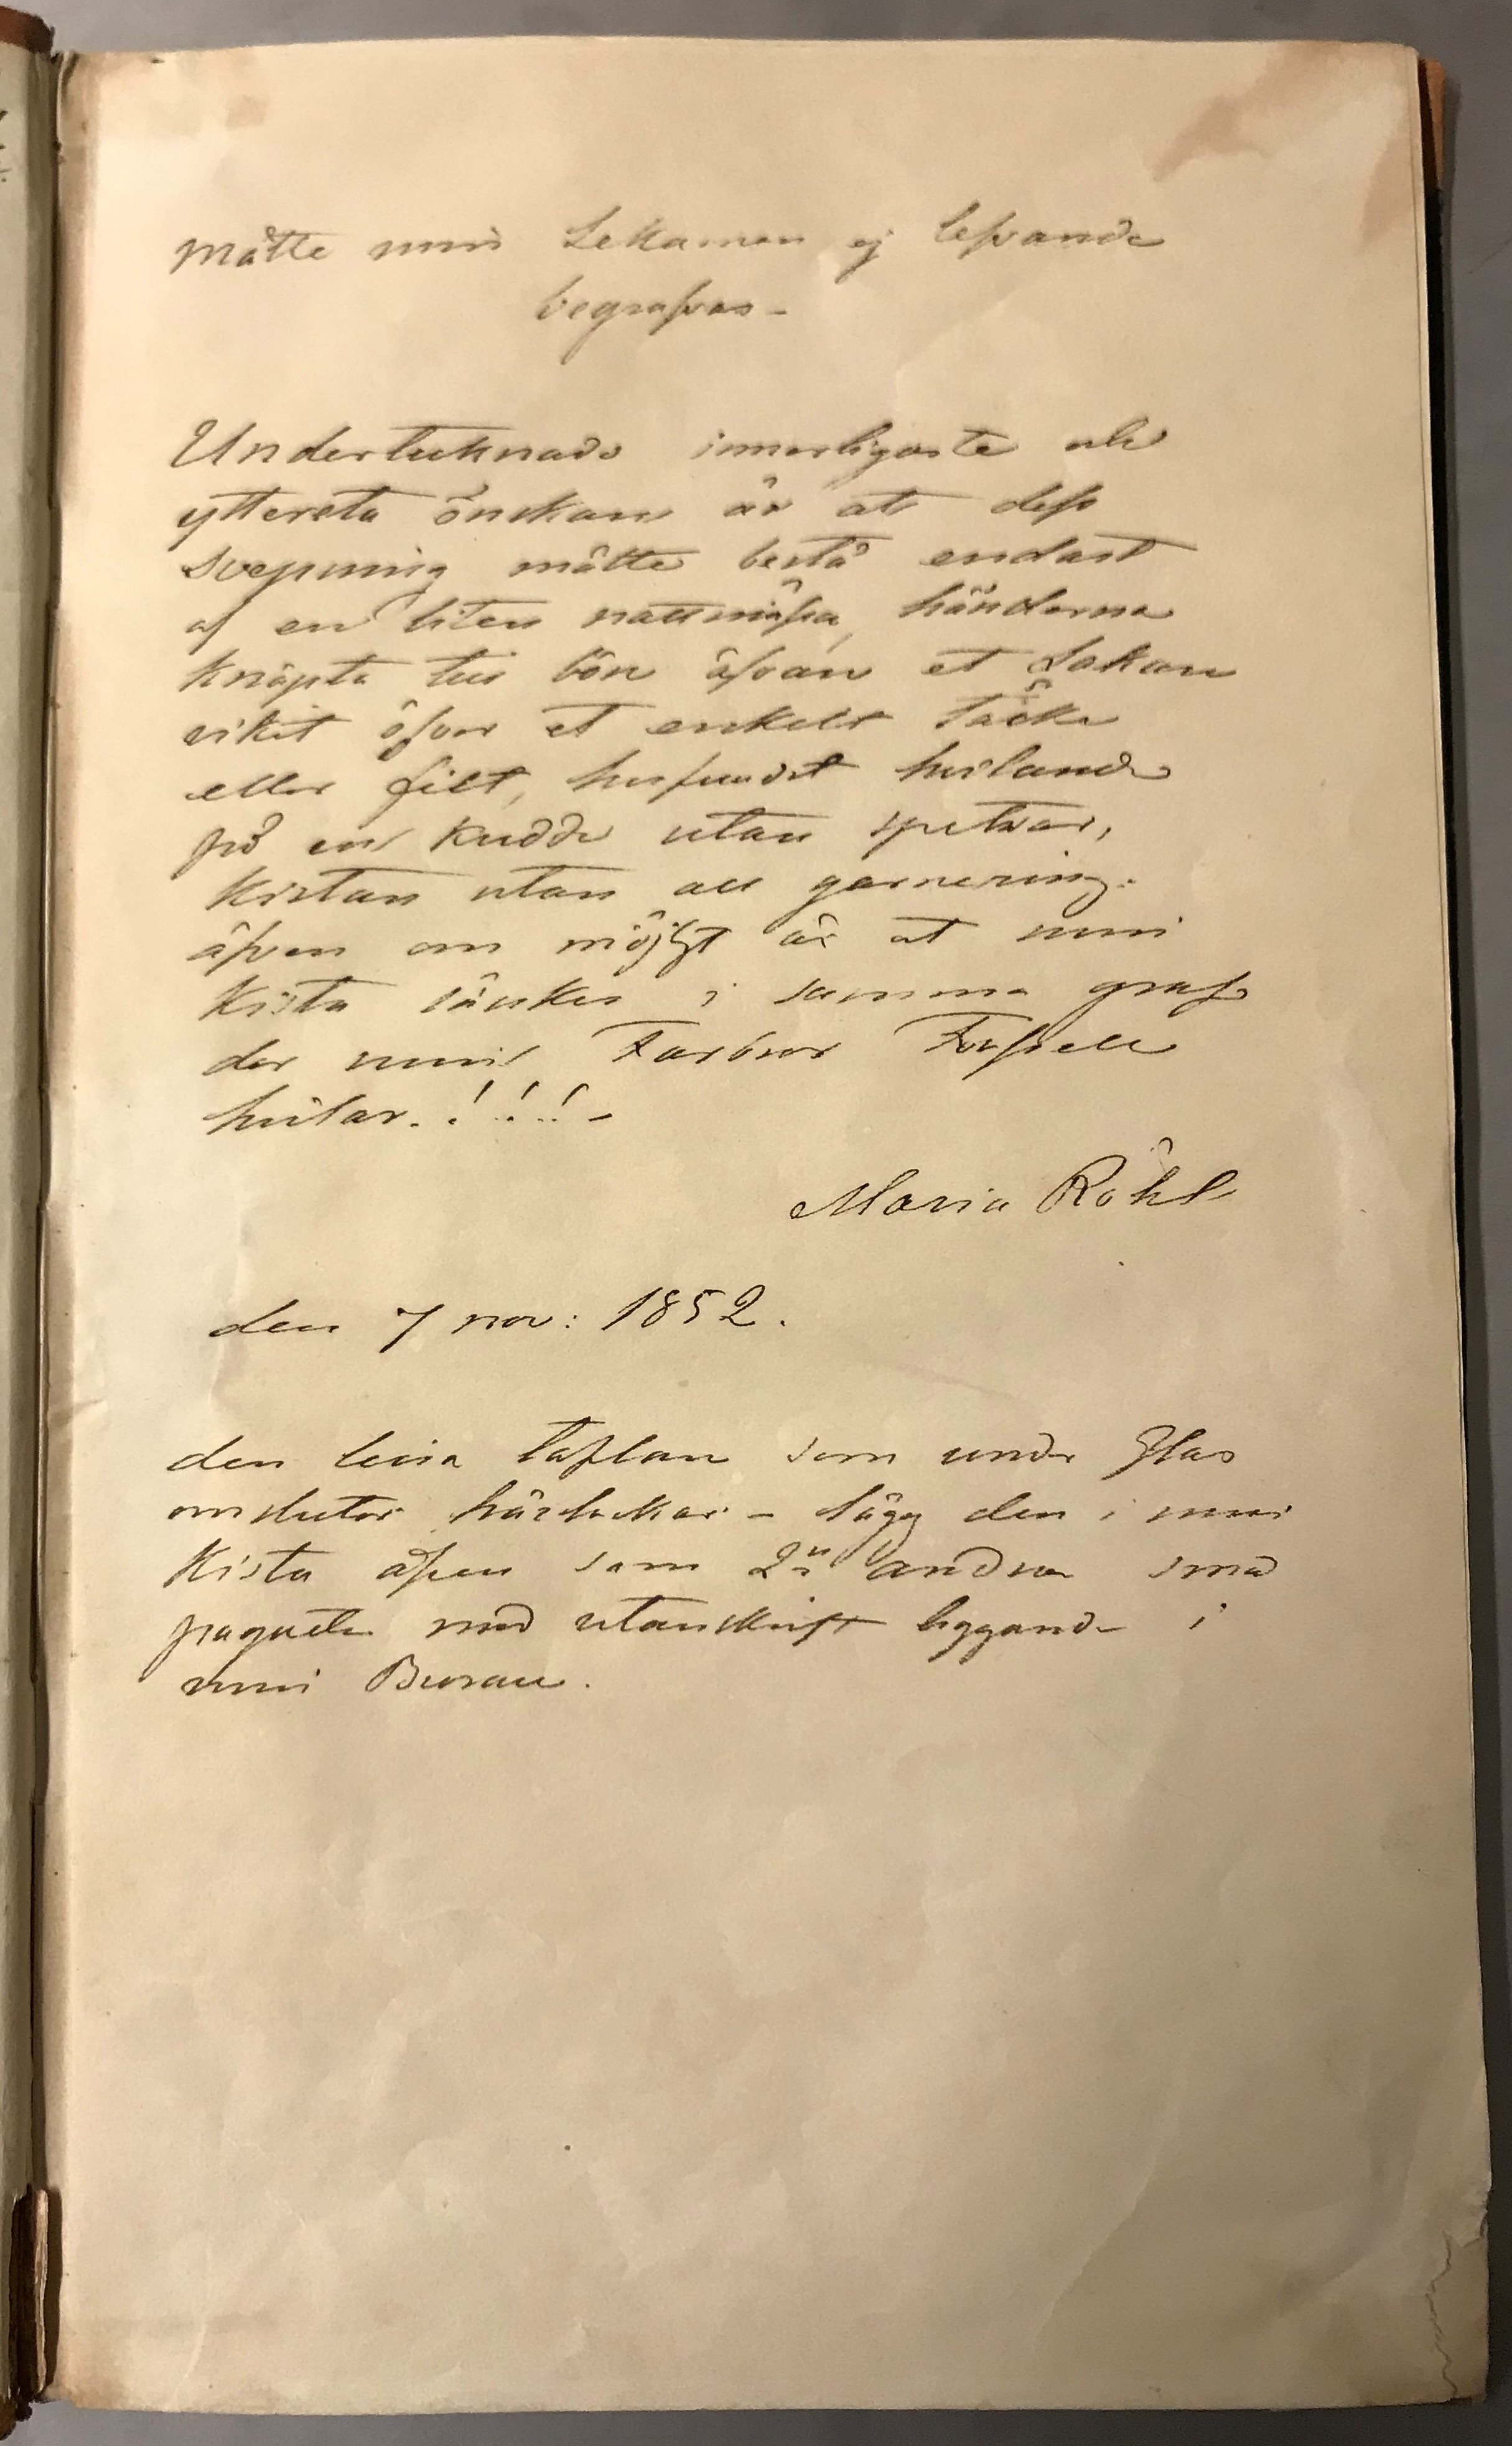 Måtte min Lekamen ej lefvande
begrafvas -
Undertecknads innerligaste och
yttersta önskan är at dess
svepning måtte bestå endast
af en liten nattmössa, händerna
knäpta till bön ofvan et Lakan
vikit öfver et enkelt täcke
eller filt, hufvudet hvilande
på en kudde utan spetsar,
Kistan utan all garnering.
äfven om möjligt är at min
Kista sänkes i samma graf
der min Farbror Forssell
hvilar. ! ! ! -
Maria Röhl
den 7 nov: 1852.
den lilla taflan som under Glas
omsluter hårlockar - lägg den i min
Kista äfven som 2ne andra små
paqueter med utanskrift liggande i
min Byrau.